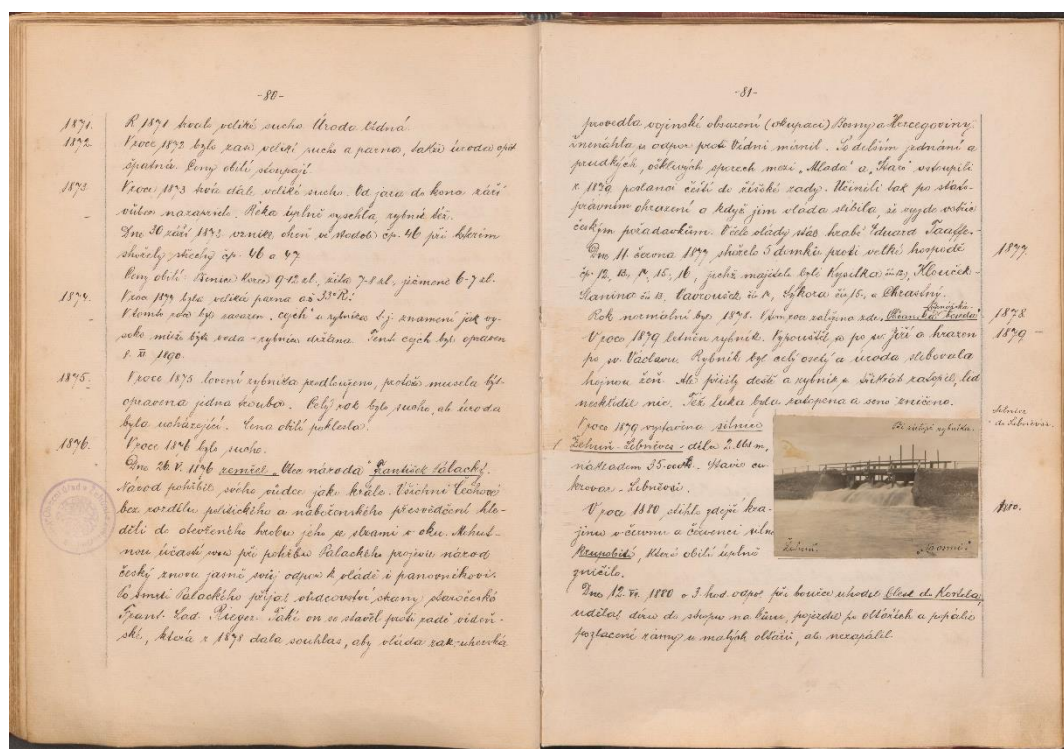 -80-
1871. R. 1871 trvalo veliké sucho. Úroda bídná.
1872 V roce 1872 bylo zase veliké sucho a parna, takže úroda opět
špatná. Ceny obilí stoupají.
1873 V roce 1873 trvá dál, veliké sucho. Od jara do konce září
vůbec nezapršelo. Řeka úplně vyschla, rybník též.
Dne 30 září 1873 vznikl oheň ve stodole čp. 46 při kterém
shořely střechy čp. 46 a 47
Ceny obilí: Pšenice korec 9-12 zl., žita 7-8 zl., ječmene 6-7 zl.
1874. V roce 1874 byla veliká parna až 33° R!
V tomto roce byl zasazen "cejch" u rybníka t.j. znamení jak vy-
soko může býti voda rybniční držána. Tento cejch byl opraven
8. XI 1890.
1875. V roce 1875 lovení rybníka prodlouženo, protože musela být
opravena jedna trouba. Celý rok bylo sucho, ale úroda
byla ucházející. Cena obilí poklesla.
1876. V roce 1876 bylo sucho.
Dne 26. V. 1876 zemřel "Otec národa" František Palacký.
Národ pohřbil svého vůdce jako krále. Všichni Čechové
bez rozdílu politického a náboženského přesvědčení hle-
děli do otevřeného hrobu jeho se slzami v oku. Mohut-
nou účastí svou při pohřbu Palackého projevil národ
český znovu jasně svůj odpor k vládě i panovníkovi.
Po smrti Palackého přijal vůdcovství strany staročeské
Frant. Lad. Rieger. Také on se stavěl proti radě vídeň-
ské, která r. 1878 dala souhlas, aby vláda rak.-uherská
-81-
provedla vojenské obsazení (okupaci) Bosny a Hercegoviny.
Znenáhla se odpor proti Vídni mírnil. Po delším jednání a
prudkých, ošklivých sporech mezi "Mladé" a "Staré" vstoupili
r. 1879 poslanci čeští do říšské rady. Učinili tak po státo-
právním ohrazení a když jim vláda slíbila, že vyjde vstříc
českým požadavkům. V čele vlády stál hrabě Eduard Taaffe.
Dne 11. června 1877 shořelo 5 domků proti velké hospodě 1877.
čp. 12, 13, 14, 15, 16, jichž majiteli byli Kysilka čís 12, Klouček-
Stanina čís 13, Vavroušek čís 14, Sýkora čís 15, a Chrastný.
Rok normální byl 1878. 1878
V roce 1879 letněn rybník. Vypouštěl se po sv. Jiří a hrazen 1879
po sv. Václavu. Rybník byl celý osetý a úroda slibovala
hojnou žeň. Ale přišly deště a rybník se třikrát zatopil, led
neskřidil nic. Též luka byla zatopena a seno zničeno.
V roce 1879 vystavěna silnice Silnice
Žehuň-Libněves - délka 2. km, do Libněvsi.
nákladem 35.000 . Stavěl cu-
krovar - Libněvsi.
V roce 1880 stihlo zdejší kra- 1880.
jinu v červnu a červenci silné
krupobití, které obilí úplně
zničilo.
Dne 12. VI. 1880 o 3. hod. odpol. při bouřce uhodil blesk do Kostela,
udělal díru do stropu na kůru, pojezdil po oltářích a popálil
pozlacené rámy u malých oltářů, ale nezapálil.
Při zátopě rybníka.
Žehuň.